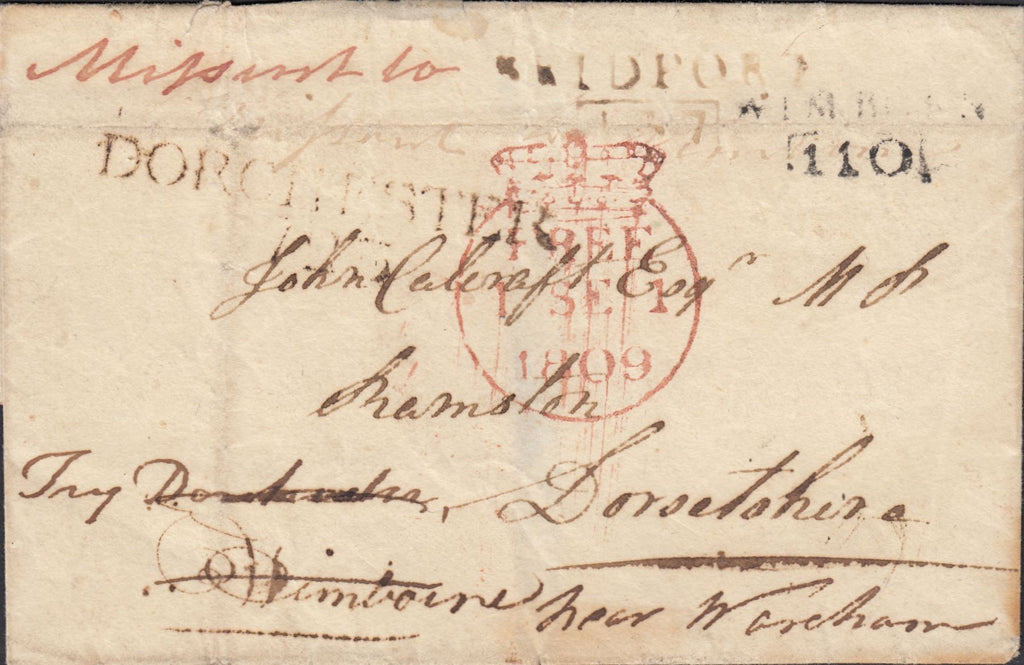 Missent to
BRIDPORT
137
WIMBORN
110
DORCHESTER
FREE
1 SE 1
1809
John Calcraft Esqr M P
Ramston
Try Dorchester, Dorsetshire
or Wimborne near Wareham